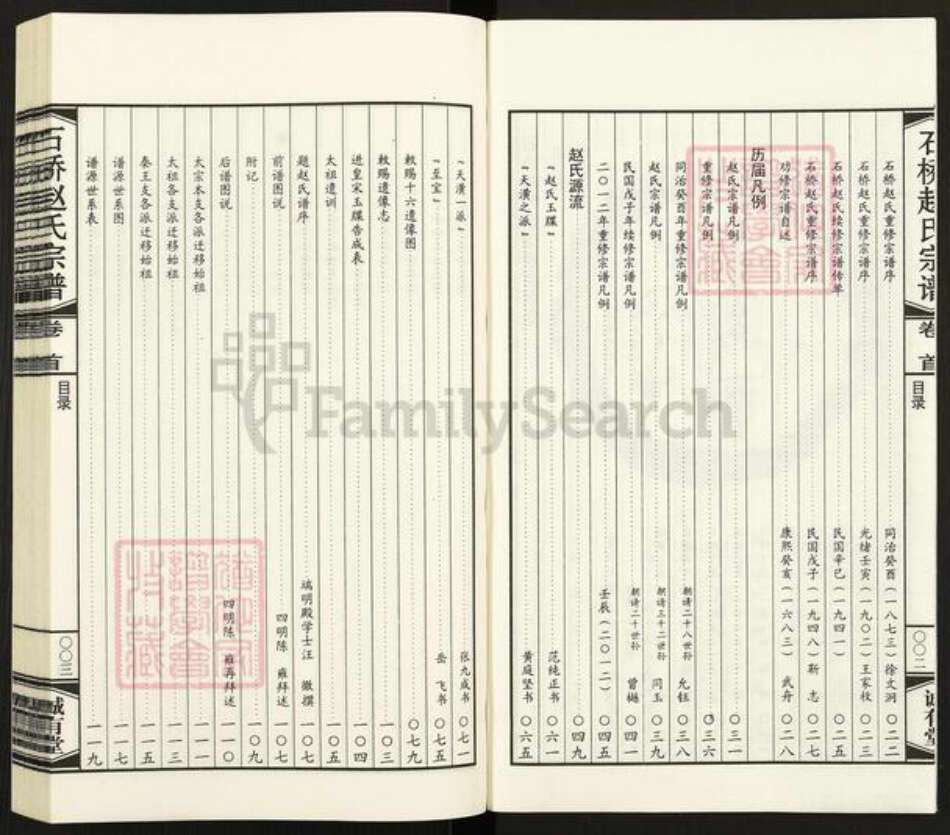 石桥赵氏宗谱
卷首
目录
〇〇二
诚有堂
石桥赵氏重修宗谱序 同治癸酉(一八七三)徐文洞 〇二二
石桥赵氏重修宗谱序 光绪壬寅(一九〇二)王家枚 〇二三
石桥赵氏续修宗谱传单 民国辛巳(一九四一) 〇二五
石桥赵氏重修宗谱序 民国戊子(一九四八)靳志 〇二七
劝修宗谱自述 康熙癸亥(一六八三)武舟 〇二八
历届凡例
赵氏宗谱凡例 〇三一
重修宗谱凡例 〇三六
同治癸酉年重修宗谱凡例 朝请二十八世孙 允钰 〇三八
赵氏宗谱凡例 朝请三十二世孙 同玉 〇三九
民国戊子年续修宗谱凡例 朝请二十世孙 曾樾 〇四一
二〇一二年重修宗谱凡例 壬辰(二〇一二) 〇四五
赵氏源流 〇四九
“赵氏玉牒” 范纯正书 〇六一
“天潢之派” 黄庭坚书 〇六五
“天潢一派” 张九成书 〇七一
“至宝” 岳飞书 〇七五
敕赐十六遗像图 〇七九
敕赐遗像志 一〇三
进皇宋玉牒告成表 一〇四
太祖遗训 一〇五
题赵氏谱序 端明殿学士汪 撰 一〇七
前谱图说 四明陈 雍拜述 一〇七
附记 一〇九
后谱图说 四明陈 雍再拜述 一一〇
太宗本支各派迁移始祖 一一一
太祖各支派迁移始祖 一一三
秦王支各派迁移始祖 一一五
谱源世系图 一一七
谱源世系表 一一九
石桥赵氏宗谱
卷首
目录
〇〇三
诚有堂
FamilySearch